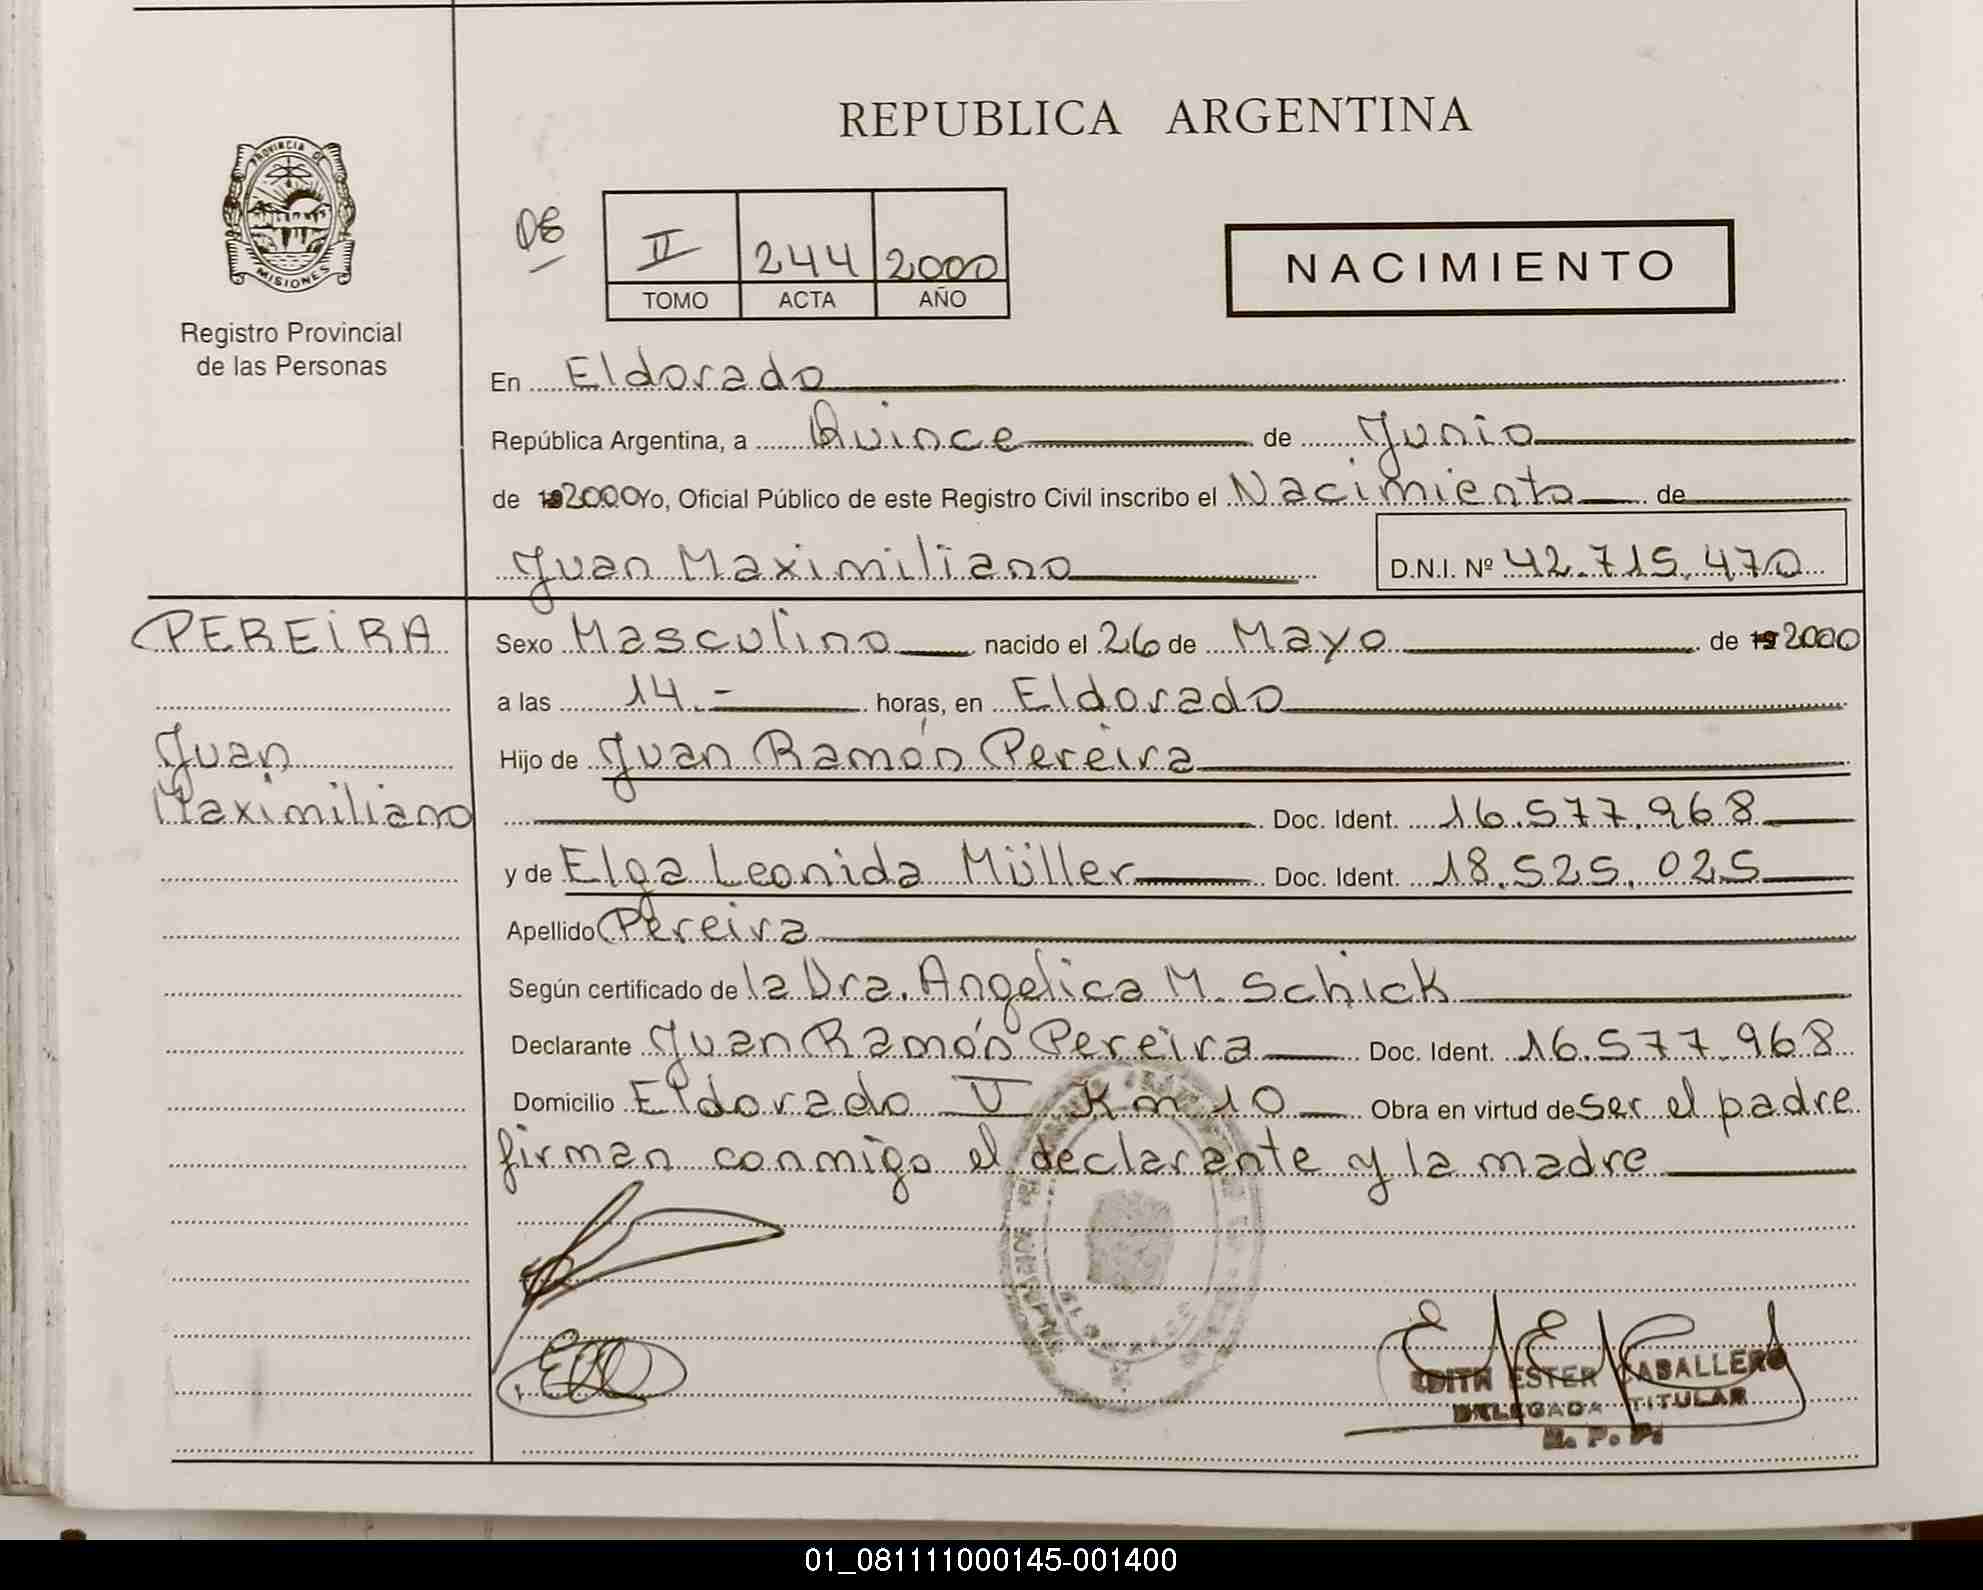 REPUBLICA ARGENTINA
PROVINCIA DE
MISIONES
Registro Provincial
de las Personas
08
II 244 2000
TOMO ACTA AÑO
NACIMIENTO
En Eldorado
República Argentina, a Quince de Junio
de 192000 Yo, Oficial Público de este Registro Civil inscribo el Nacimiento de
Juan Maximiliano D.N.I. Nº 42.715.470
PEREIRA
Juan
Maximiliano
Sexo Masculino nacido el 26 de Mayo de 192000
a las 14.- horas, en Eldorado
Hijo de Juan Ramón Pereira
Doc. Ident. 16.577.968
y de Elga Leonida Müller Doc. Ident. 18.525.025
Apellido Pereira
Según certificado de la Dra. Angelica M. Schick
Declarante Juan Ramón Pereira Doc. Ident. 16.577.968
Domicilio Eldorado Km 10 Obra en virtud de ser el padre
firman conmigo el declarante y la madre
EDITH ESTER CABALLERO
DELEGADA TITULAR
R. P. P.
01_081111000145-001400